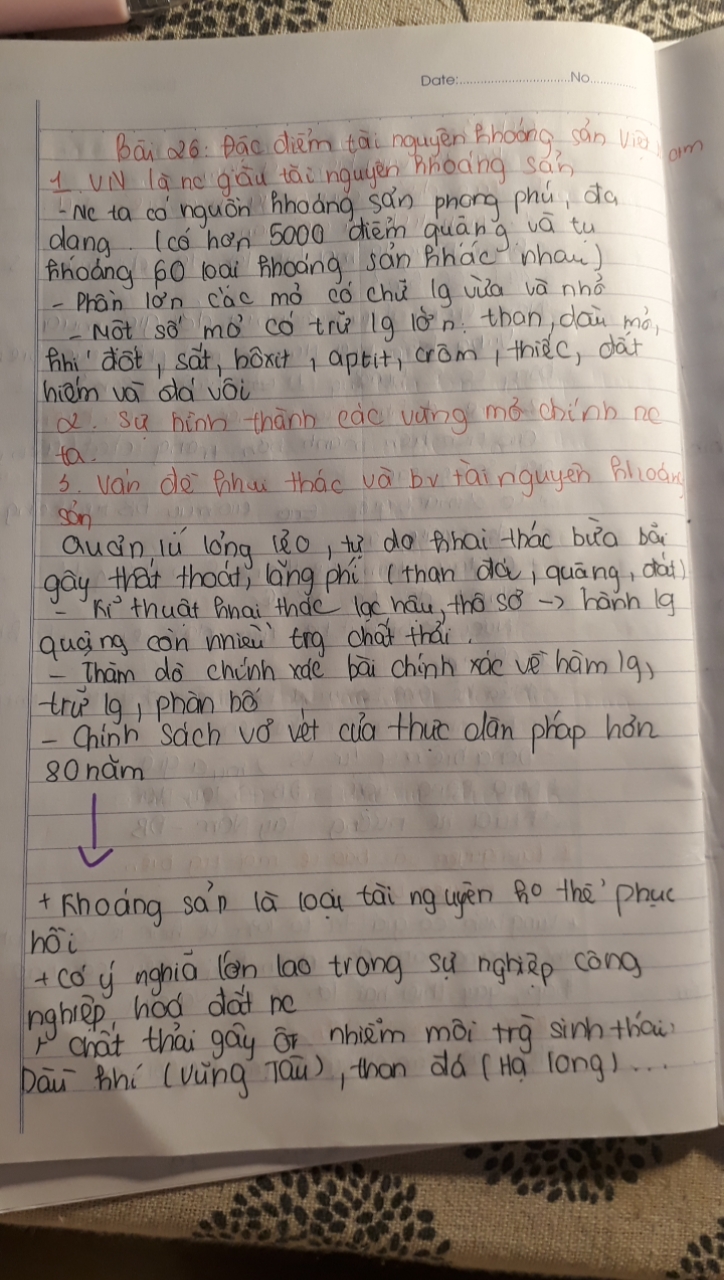 Date:..............................No............
Bài 26: Đặc điểm tài nguyên khoáng sản Việt Nam
1. VN là nc giầu tài nguyên khoáng sản
- Nc ta có nguồn khoáng sản phong phú, đa
dạng. (có hơn 5000 điểm quặng và tụ
khoáng 60 loại khoáng sản khác nhau)
- Phần lớn các mỏ có chữ lg vừa và nhỏ
- Một số mỏ có trữ lg lớn: than, dầu mỏ,
khí đốt, sắt, bôxit, aptit, crôm, thiếc, đất
hiếm và đá vôi
2. Sự hình thành các vùng mỏ chính nc
ta.
3. Vấn đề khai thác và bv tài nguyên khoáng
sản
Quản lí lỏng lẻo, tự do khai thác bừa bãi
gây thất thoát, lãng phí (than đá, quặng, đất)
- Kĩ thuật khai thác lạc hậu, thô sơ -> hành lg
quặng còn nhiều trg chất thải.
- Thăm dò chính xác bài chính xác về hàm lg,
trữ lg, phân bố
- Chính sách vơ vét của thực dân pháp hơn
80 năm
+ Khoáng sản là loại tài nguyên ko thể phục
hồi
+ Có ý nghĩa lớn lao trong sự nghiệp công
nghiệp hoá đất nc
+ chất thải gây ô nhiễm môi trg sinh thái:
Dầu khí (Vũng Tàu), than đá (Hạ long)...